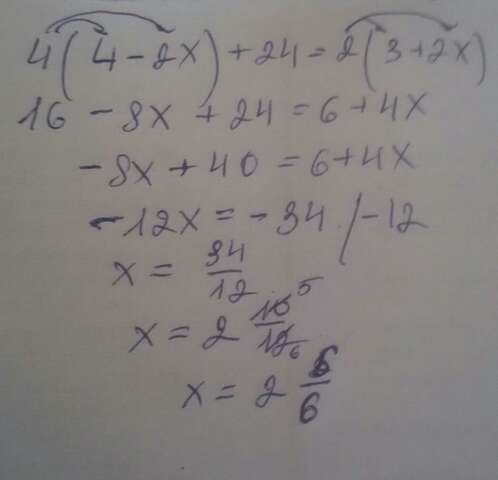 4(4-2x)+24=2(3+2x)
16-8x+24=6+4x
-8x+40=6+4x
-12x=-34 /-12
x= 34/12
x=2 10/12 5 6
x=2 5/6